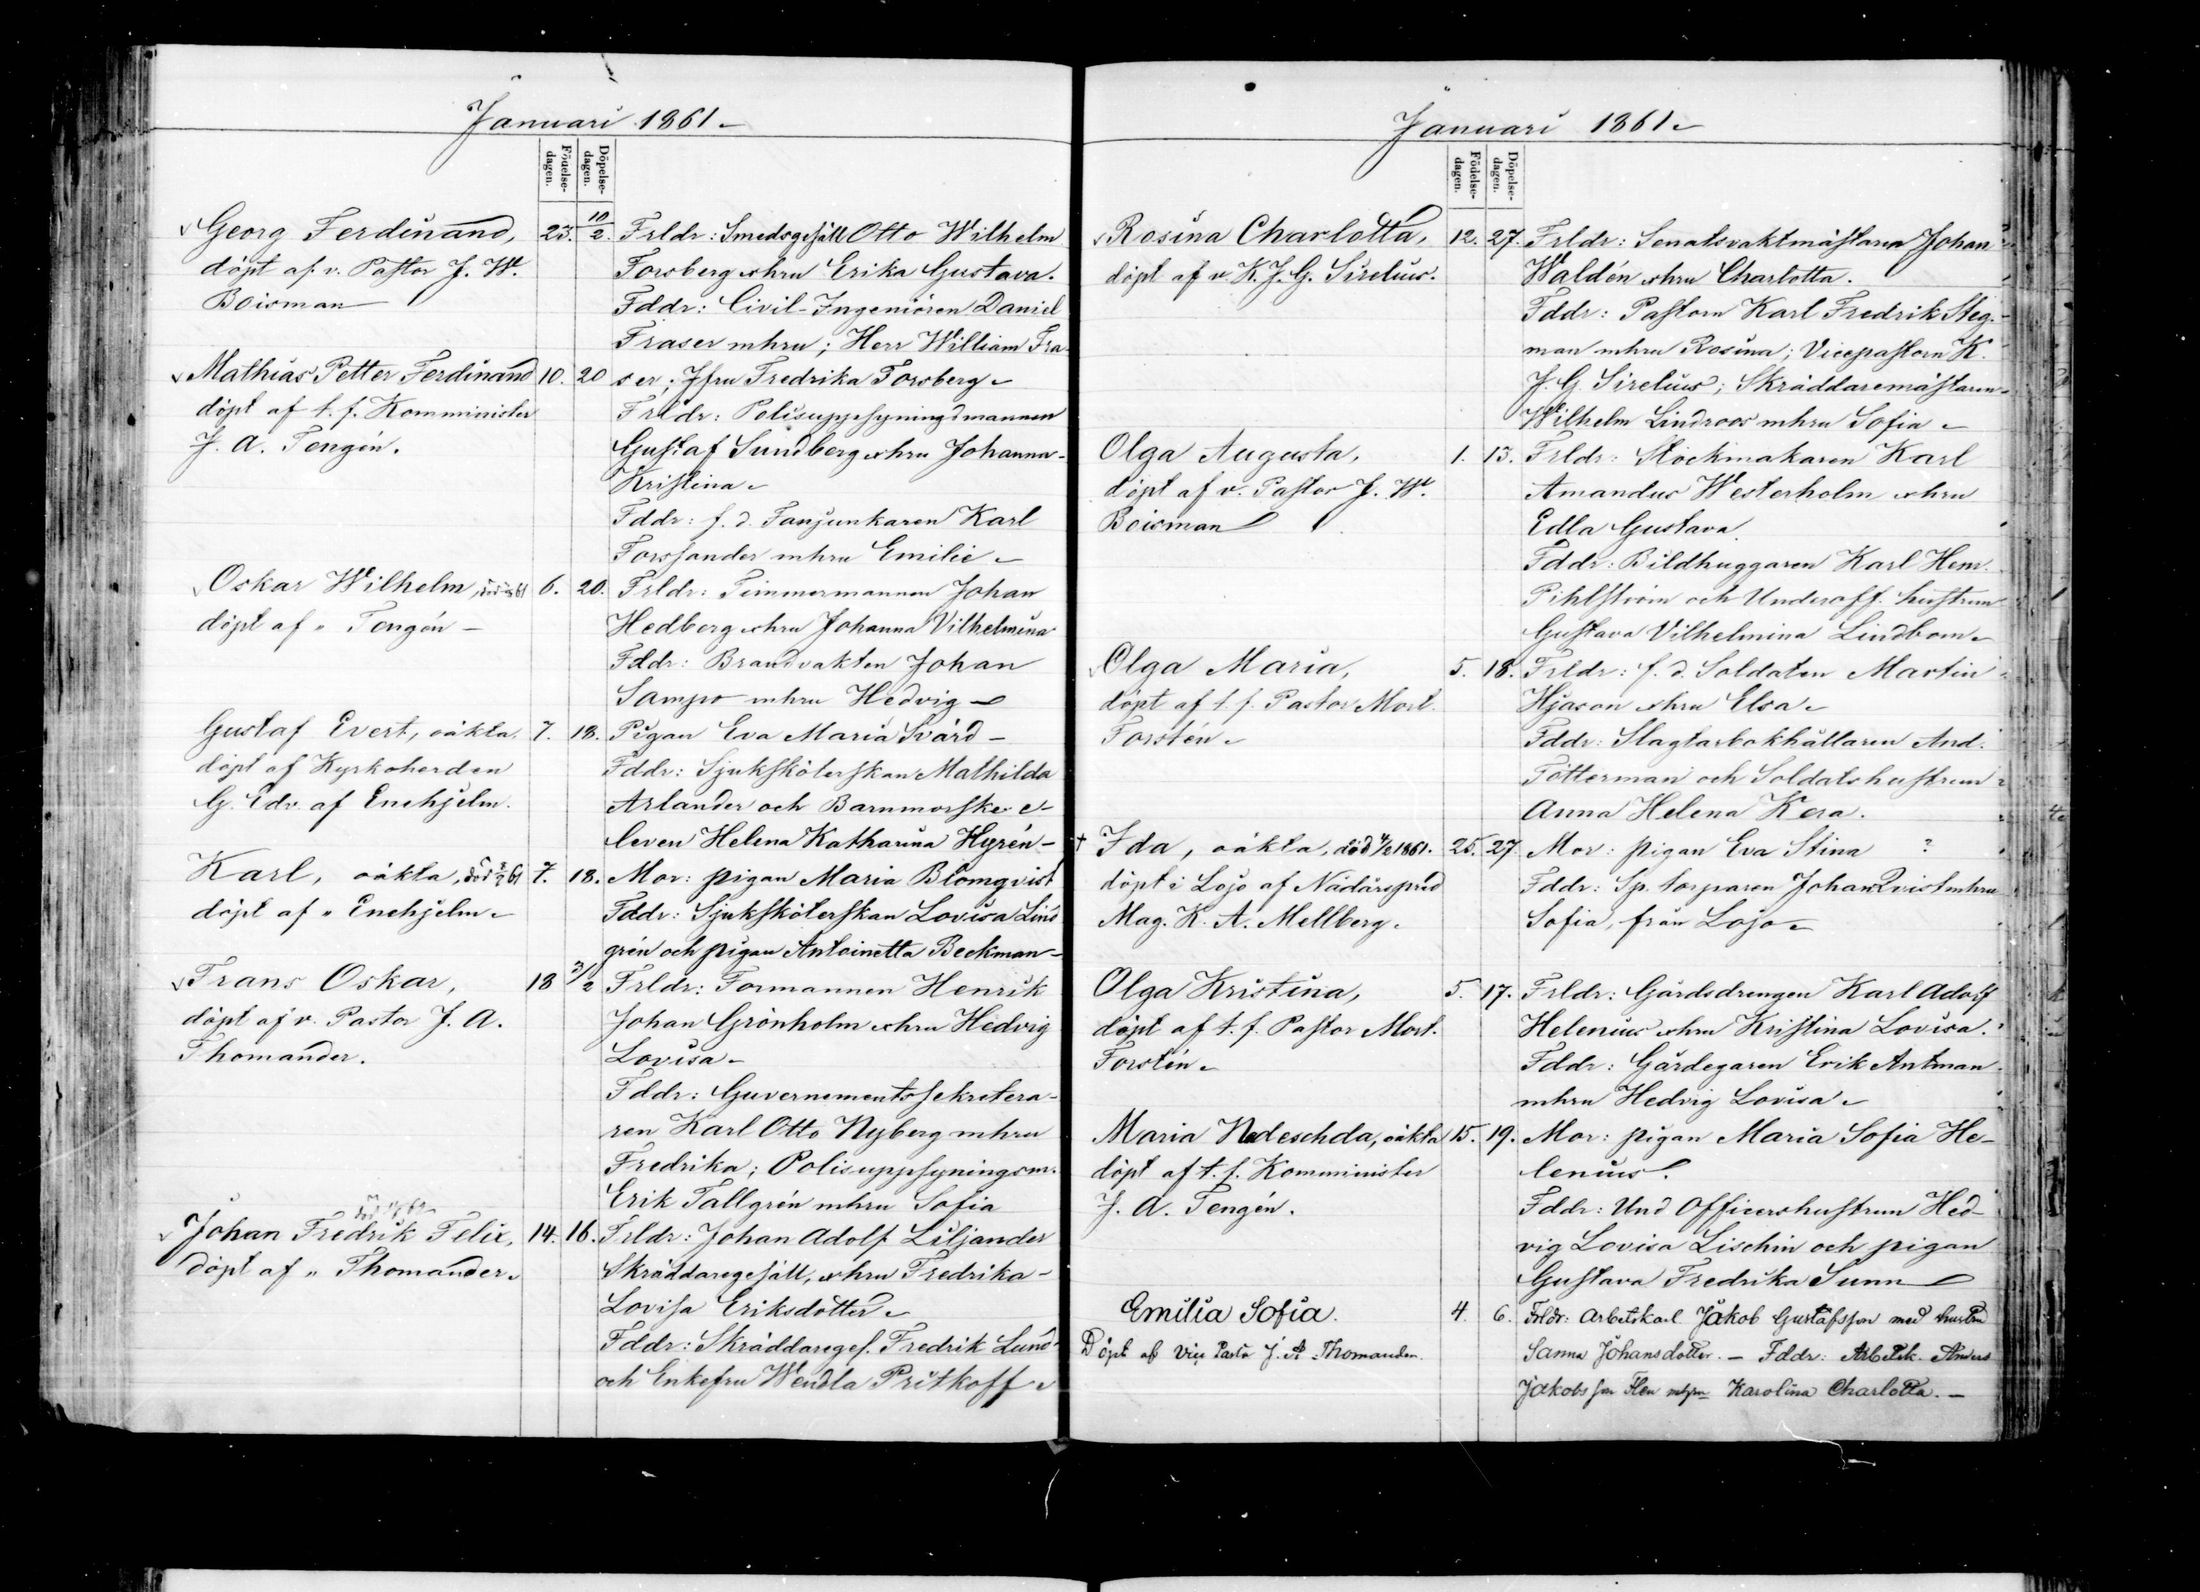 Januari 1861
Födelse-
dagen.
Döpelse-
dagen.
Georg Ferdinand,
döpt af v. Pastor J. W.
Boisman
23. 10/2.
Frldr: Smedsgesäll Otto Wilhelm
Forsberg o. hru Erika Gustava.
Fddr: Civil-Ingeniören Daniel
Fraser mhru; Herr William Fra-
ser; Jfru Fredrika Forsberg
Mathias Petter Ferdinand
döpt af t. f. Komminister
J. A. Tengén.
10. 20
Frldr: Polisuppsyningsmannen
Gustaf Sundberg o. hru Johanna
Kristina
Fddr: f. d. Fanjunkaren Karl
Forssander mhru Emilie
Oskar Wilhelm, död 61
döpt af " Tengén
6. 20.
Frldr: Timmermannen Johan
Hedberg o. hru Johanna Vilhelmina
Fddr: Brandvakten Johan
Sampo mhru Hedvig
Gustaf Evert, oäkta
döpt af Kyrkoherden
G. Edv. af Enehjelm.
7. 18.
Pigan Eva Maria Svärd
Fddr: Sjuksköterskan Mathilda
Arlander och Barnmorske e-
leven Helena Katharina Hyrén
Karl, oäkta, död 61
döpt af " Enehjelm
7. 18.
Mor: pigan Maria Blomqvist
Fddr: Sjuksköterskan Lovisa Lind
grén och pigan Antoinetta Beckman
Frans Oskar,
döpt af v. Pastor J. A.
Thomander.
18 3/2
Frldr: Formannen Henrik
Johan Grönholm o. hru Hedvig
Lovisa
Fddr: Guvernementssekretera-
ren Karl Otto Nyberg mhru
Fredrika; Polisuppsyningsm.
Erik Tallgrén mhru Sofia
Johan Fredrik Felix,
döpt af " Thomander
14. 16.
Frldr: Johan Adolf Liljander
Skräddaregesäll, o. hru Fredrika
Lovisa Eriksdotter
Fddr: Skräddareges. Fredrik Lund
och Enkefru Wendla Pritkoff
Januari 1861
Födelse-
dagen.
Döpelse-
dagen.
Rosina Charlotta,
döpt af v. K. J. G. Sirelius.
12. 27.
Frldr: Senatsvaktmästaren Johan
Waldén o. hru Charlotta.
Fddr: Pastorn Karl Fredrik Steg-
man mhru Rosina; Vicepastorn K.
J. G. Sirelius; Skräddaremästaren
Wilhelm Lindroos mhru Sofia
Olga Augusta,
döpt af v. Pastor J. W.
Boisman
1. 13.
Frldr: Stockmakaren Karl
Amandus Westerholm o. hru
Edla Gustava.
Fddr: Bildhuggaren Karl Henr.
Pihlström och Underoff. hustrun
Gustava Vilhelmina Lindbom
Olga Maria,
döpt af t. f. Pastor Mort.
Forstén
5. 18.
Frldr: f. d. Soldaten Martin
Hjason o. hru Elsa
Fddr: Slagtarbokhållaren And.
Fötterman och Soldatshustrun
Anna Helena Kera.
† Ida, oäkta, död 1861.
döpt i Lojo af Nådårspred
Mag. K. A. Mellberg.
25. 27.
Mor: pigan Eva Stina ?
Fddr: Sp. torparen Johan Qvist mhru
Sofia, från Lojo
Olga Kristina,
döpt af t. f. Pastor Mort.
Forstén
5. 17.
Frldr: Gårdsdrengen Karl Adolf
Helenius o. hru Kristina Lovisa.
Fddr: Gårdegaren Erik Antman
mhru Hedvig Lovisa
Maria Nadeschda, oäkta
döpt af t. f. Komminister
J. A. Tengén.
15. 19.
Mor: pigan Maria Sofia He-
lenius.
Fddr: Und Officershustrun Hed-
vig Lovisa Lischin och pigan
Gustava Fredrika Sunn
Emilia Sofia.
Döpt af Vice Pastor J. A. Thomander.
4. 6.
Frldr: Arbetskarl Jakob Gustafsson med hustru
Sanna Johansdotter. – Fddr: Arbetsk. Anders
Jakobsson mhru Karolina Charlotta. –